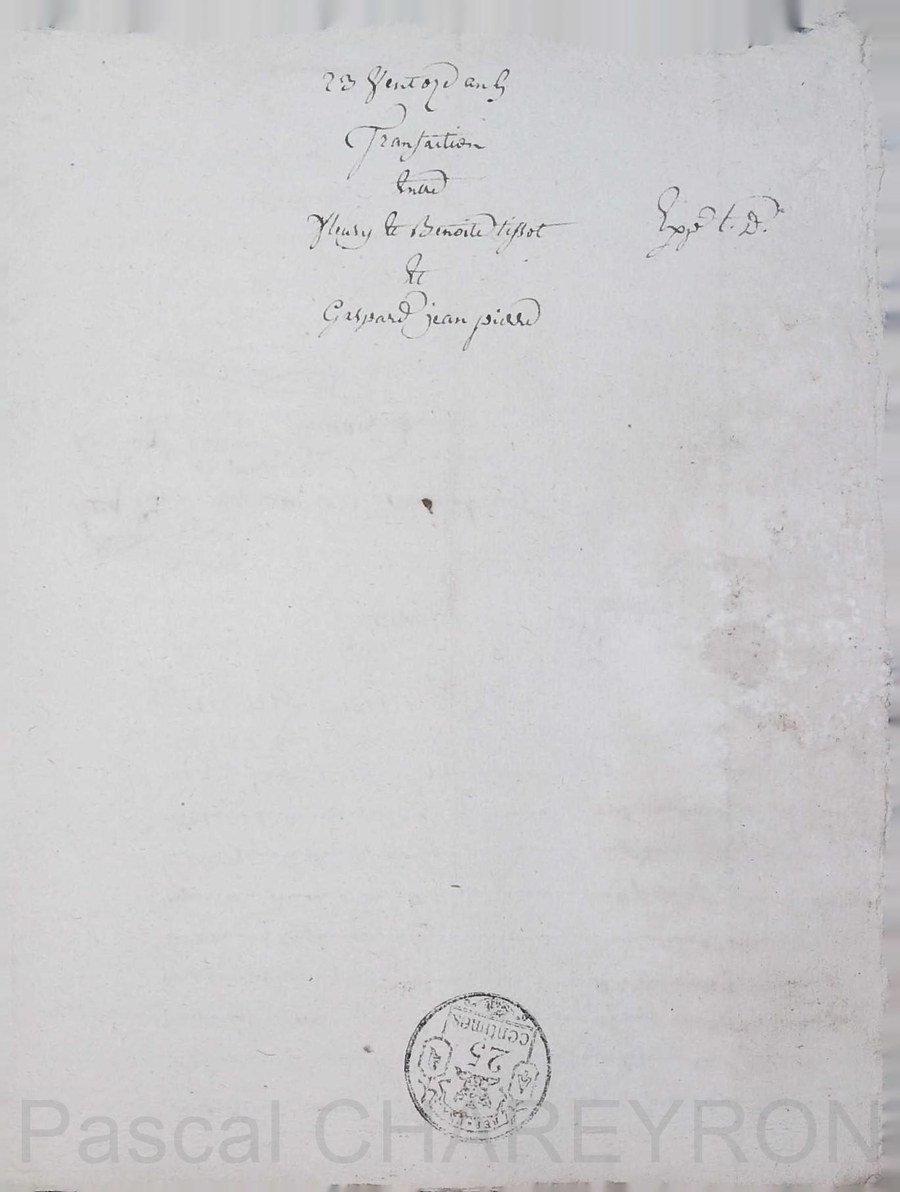 23 Ventoze an 5
Transaction
Entre
Fleury Et Benoite tissot
Et
Gaspard jean pierre
Exp.e t. D.
25
centimes
Pascal CHAREYRON